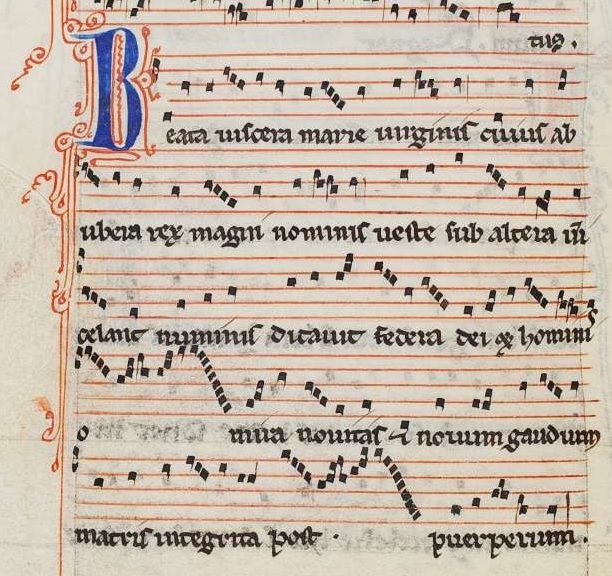 tus.
Beata uiscera marie uirginis cuius ab
ubera rex magni nominis ueste sub altera uim
celant numinis dictauit federa dei et hominis
o mira nouitas et nouum gaudium
matris integrita post. puerperium.